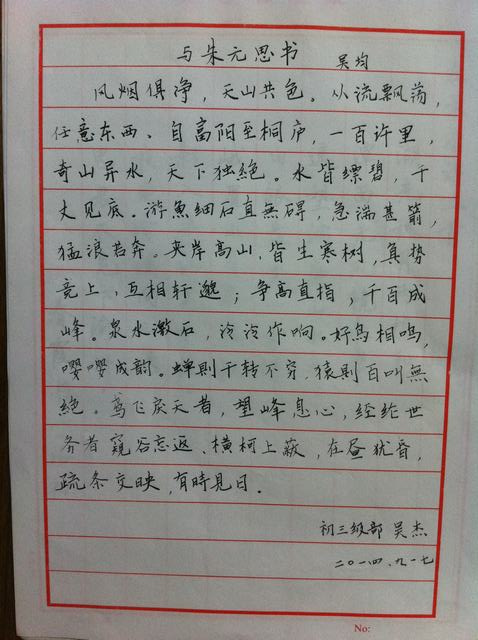 与朱元思书 吴均
风烟俱净，天山共色。从流飘荡，
任意东西。自富阳至桐庐，一百许里，
奇山异水，天下独绝。水皆缥碧，千
丈见底。游鱼细石直無碍，急湍甚箭，
猛浪若奔。夹岸高山，皆生寒树，負势
竞上，互相轩邈；争高直指，千百成
峰。泉水激石，泠泠作响。好鸟相鸣，
嘤嘤成韵。蝉則千转不穷，猿則百叫無
絕。鸢飞戾天者，望峰息心，经纶世
务者窥谷忘返。横柯上蔽，在昼犹昏，
疏条交映，有時見日。
初三级部 吴杰
二〇一四.九.一七
No: